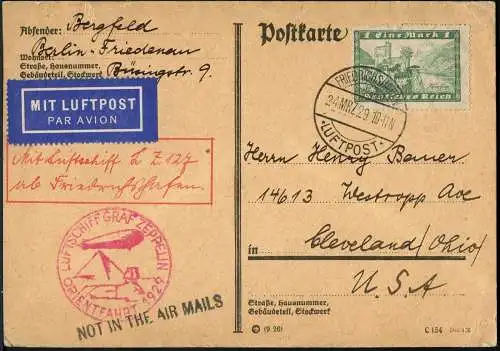 Absender: Bergfeld
Berlin-Friedenau
Wohnort:
Straße, Hausnummer, Büsingstr. 9.
Gebäudeteil, Stockwerk
MIT LUFTPOST
PAR AVION
Mit Luftschiff L Z 127
ab Friedrichshafen.
LUFTSCHIFF GRAF ZEPPELIN
ORIENTFAHRT 1929
NOT IN THE AIR MAILS
Postkarte
1 Eine Mark 1
Deutsches Reich
24 MRZ 29 10-11N
LUFTPOST
Herrn Henry Bauer
14613 Westropp Ave
in Cleveland/Ohio/
U.S.A
Straße, Hausnummer,
Gebäudeteil, Stockwerk
(9.28)
C 154